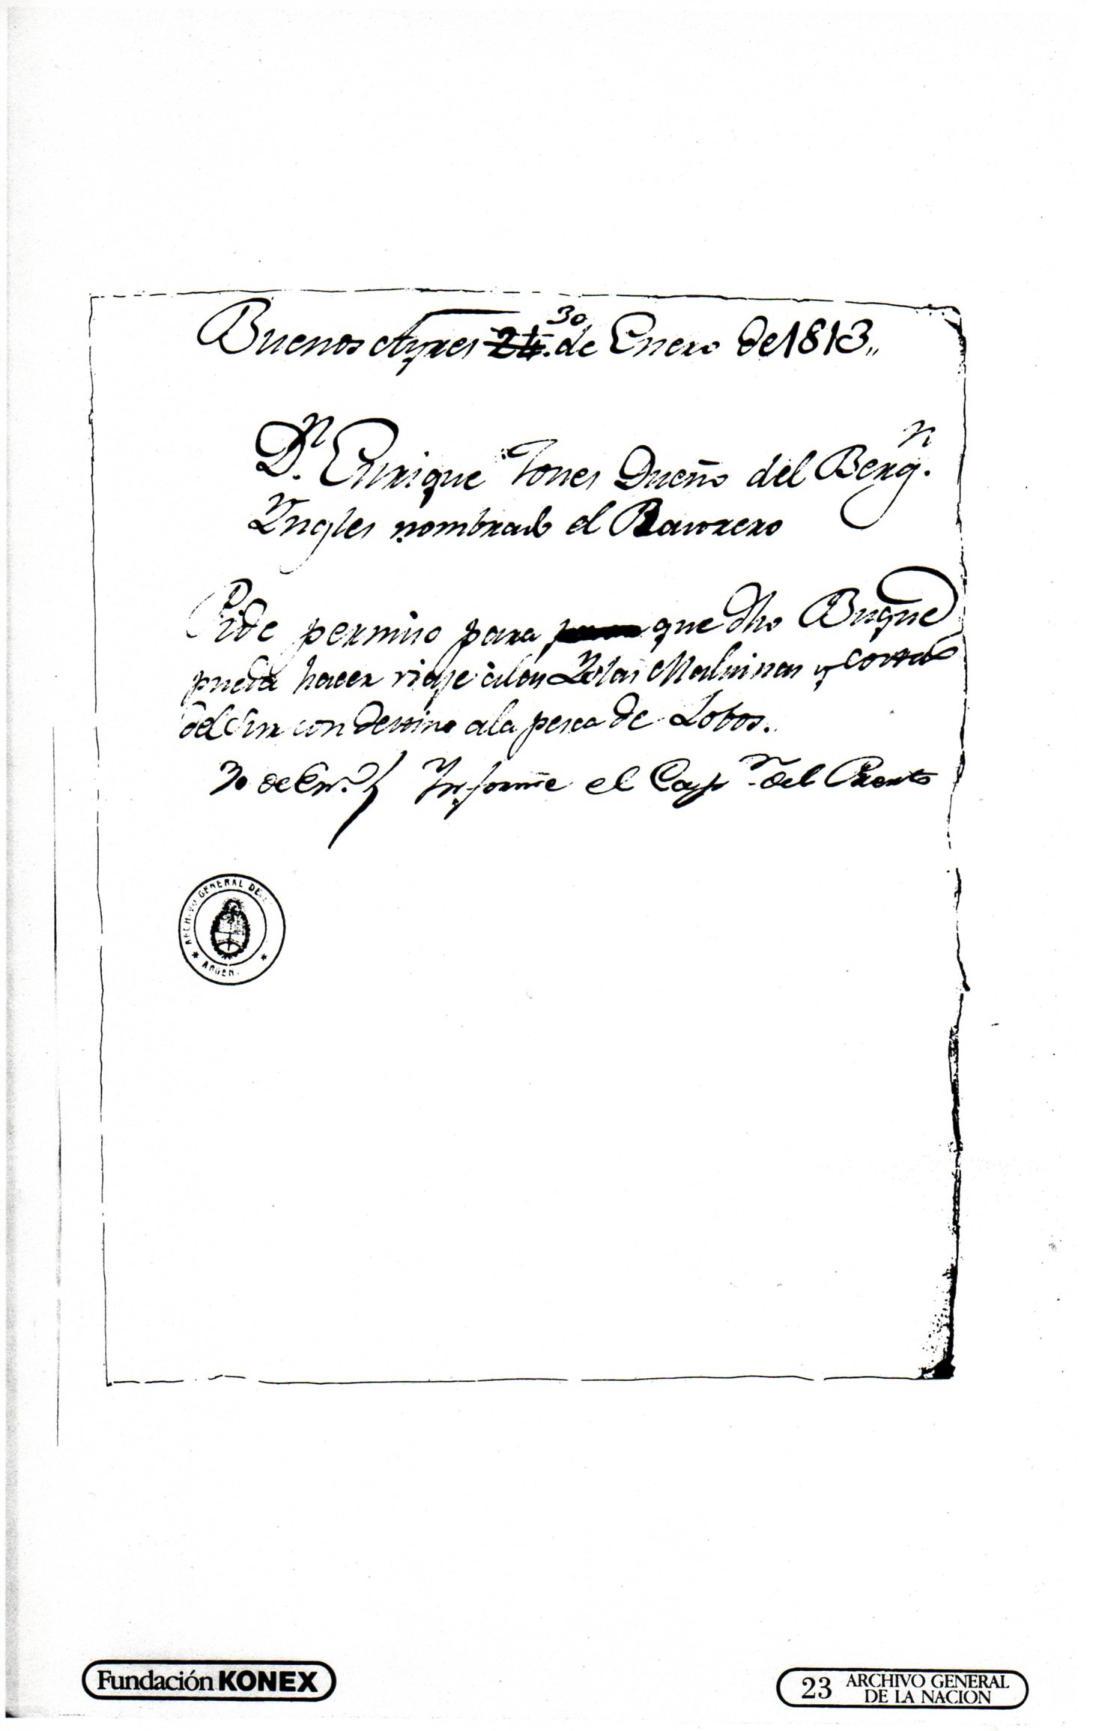 Buenos Ayres 24. 30 de Enero de 1813,,
Dn. Enrique Jones Dueño del Bergn.
Yngles nombrado el
Pide permiso para que dho Buque
pueda hacer viaje alas Yslas Malvinas y costas
del Sur con destino ala pesca de Lobos.
30 de En.o Ynforme el Capn. del Puerto
ARCHIVO GENERAL DE
ARGEN
Fundación KONEX
23 ARCHIVO GENERAL
DE LA NACION